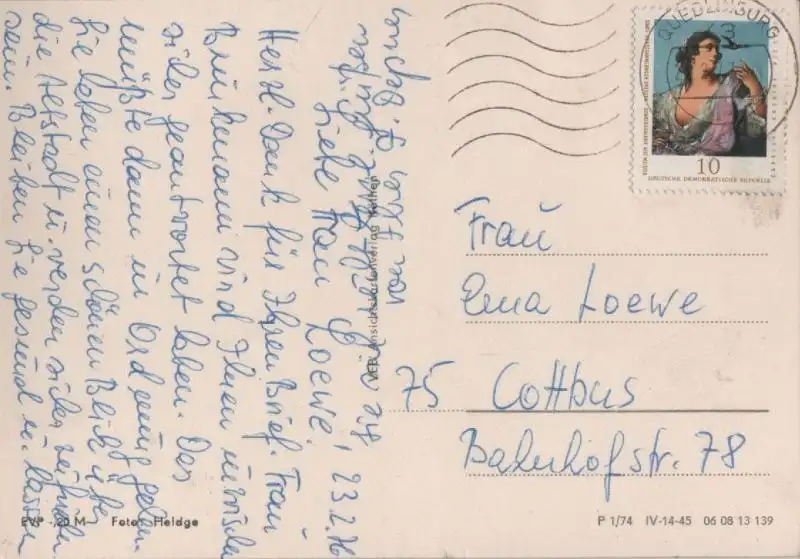 23.2.76
Liebe Frau Loewe!
Herzl. Dank für Ihren Brief. Frau
Brinkmann wird Ihnen inzwischen
sicher geantwortet haben. Das
müßte dann in Ordnung gehen.
Sie haben einen schönen Blick über
die Altstadt u. werden sicher zufrieden
sein. Bleiben Sie gesund u. lassen
von
VEB Ansichtskartenverlag
EVP -,20 M Foto: Heldge
QUEDLINBURG
10
DEUTSCHE DEMOKRATISCHE REPUBLIK
Frau
Erna Loewe
75 Cottbus
Bahnhofstr. 78
P 1/74 IV-14-45 06 08 13 139